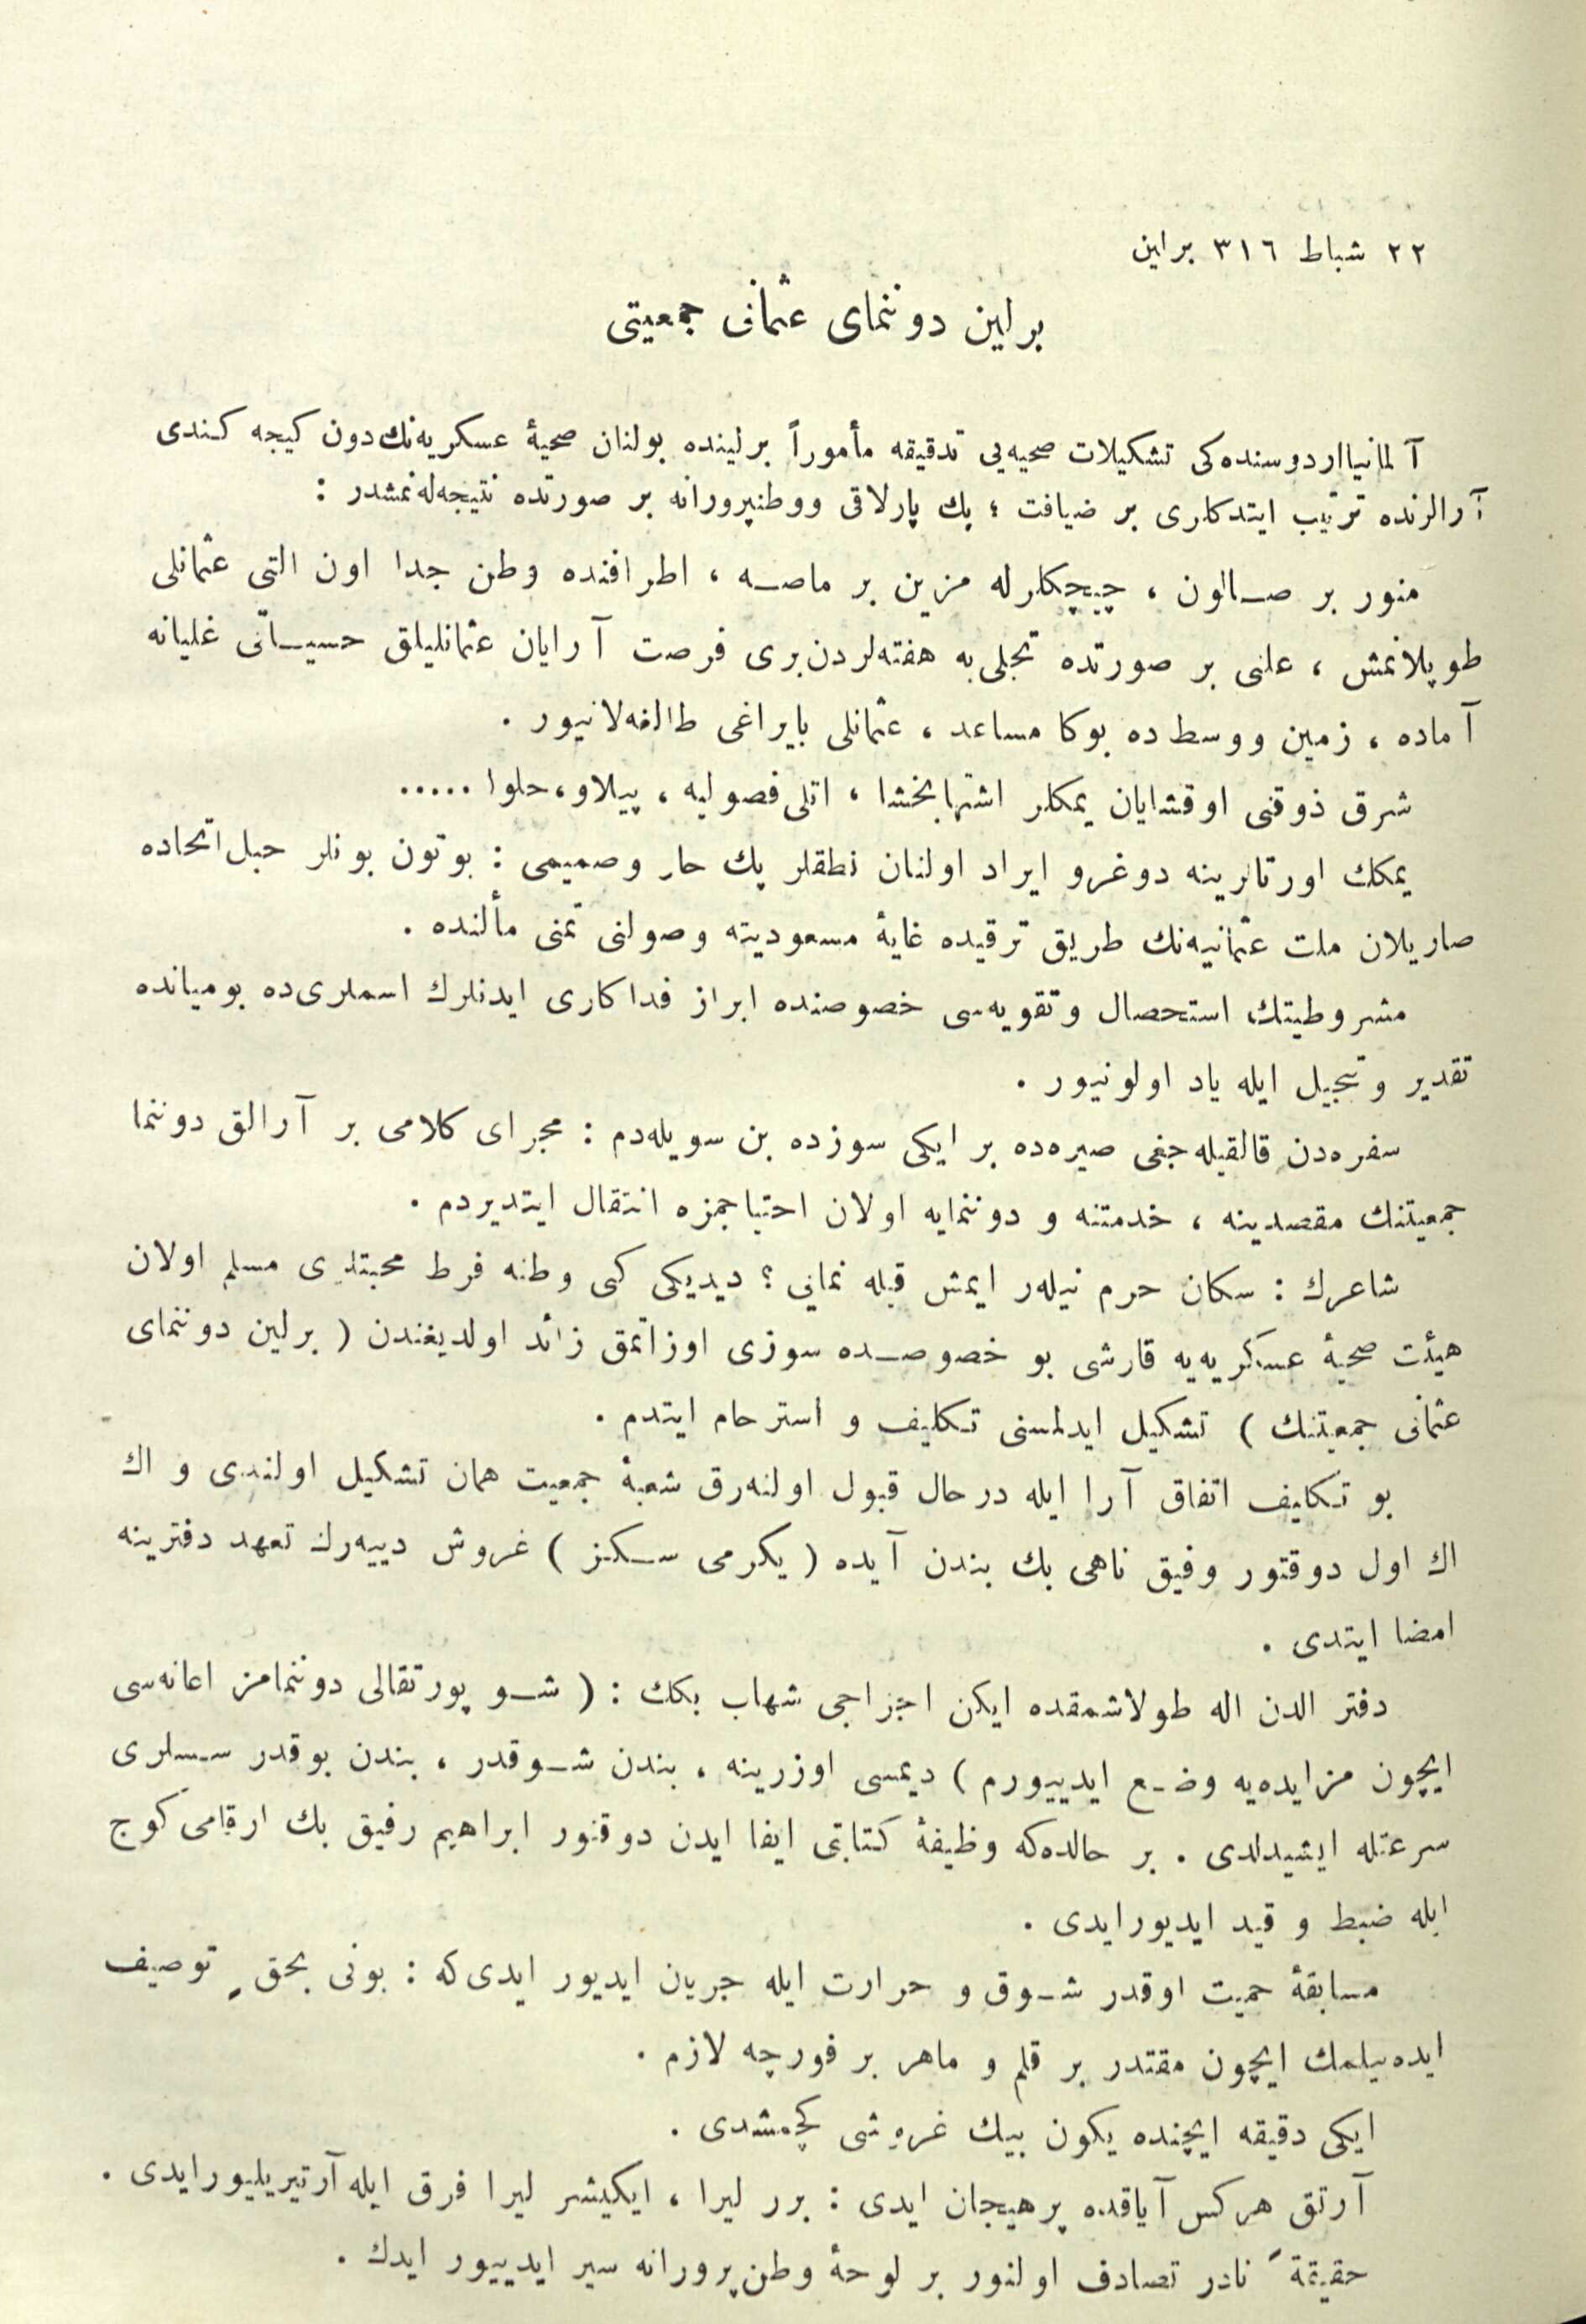 ٢٢ شباط ٣١٦ براين
برلین دوننمای عثمانی جمعیتی
آلمانیااردوسنده‌کی تشکیلات صحیه‌یی تدقیقه مأموراً برلینده بولنان صحیهٔ عسکریه‌نك دون کیجه کندی
آرالرنده ترتیب ایتدکلری بر ضیافت ؛ پك پارلاق ووطنپرورانه بر صورتده نتیجه‌لنمشدر :
منور بر صالون ، چیچکلرله مزین بر ماصه ، اطرافنده وطن جدا اون التی عثمانلی
طوپلانمش ، علنی بر صورتده تجلی‌یه هفته‌لردن‌بری فرصت آرایان عثمانلیلق حسیاتی غلیانه
آماده ، زمین ووسط ده بوکا مساعد ، عثمانلی بایراغی طالغه‌لانیور .
شرق ذوقنی اوقشایان یمکلر اشتهابخشا ، اتلی‌فصولیه ، پیلاو ، حلوا .....
یمکك اورتالرینه دوغرو ایراد اولنان نطقلر پك حار وصمیمی : بوتون بونلر حبل‌اتحاده
صاریلان ملت عثمانیه‌نك طریق ترقیده غایهٔ مسعودیته وصولنی تمنی مألنده .
مشروطیتك استحصال وتقویه‌سی خصوصنده ابراز فداکاری ایدنلرك اسملری‌ده بومیانده
تقدیر وتبجیل ایله یاد اولونیور .
سفره‌دن قالقیله‌جغی صیره‌ده بر ایکی سوزده بن سویله‌دم : مجرای کلامی بر آرالق دوننما
جمعیتنك مقصدینه ، خدمتنه و دوننمایه اولان احتیاجمزه انتقال ایتدیردم .
شاعرك : سکان حرم نیلەر ایمش قبله نمایی ؟ دیدیکی کبی وطنه فرط محبتلری مسلم اولان
هیئت صحیهٔ عسکریه‌یه قارشی بو خصوصده سوزی اوزاتمق زائد اولدیغندن ( برلین دوننمای
عثمانی جمعیتنك ) تشکیل ایدلمسنی تکلیف و استرحام ایتدم .
بو تکلیف اتفاق آرا ایله درحال قبول اولنه‌رق شعبهٔ جمعیت همان تشکیل اولندی و اك
اك اول دوقتور وفیق ناهی بك بندن آیده ( یکرمی سکز ) غروش دییه‌رك تعهد دفترینه
امضا ایتدی .
دفتر الدن اله طولاشمقده ایکن اجزاجی شهاب بکك : ( شو پورتقالی دوننمامز اعانه‌سی
ایچون مزایده‌یه وضع ایدییورم ) دیمسی اوزرینه ، بندن شوقدر ، بندن بوقدر سسلری
سرعتله ایشیدلدی . بر حالده‌که وظیفهٔ کتابتی ایفا ایدن دوقتور ابراهیم رفیق بك ارقامی کوج
ایله ضبط و قید ایدیورایدی .
مسابقهٔ حمیت اوقدر شوق و حرارت ایله جریان ایدیور ایدی‌که : بونی بحق توصیف
ایده‌بیلمك ایچون مقتدر بر قلم و ماهر بر فورچه لازم .
ایکی دقیقه ایچنده یکون بیك غروشی کچمشدی .
آرتق هرکس آیاقده پرهیجان ایدی : برر لیرا ، ایکیشر لیرا فرق ایله آرتیریلیورایدی .
حقیقةً نادر تصادف اولنور بر لوحهٔ وطن‌پرورانه سیر ایدییور ایدك .